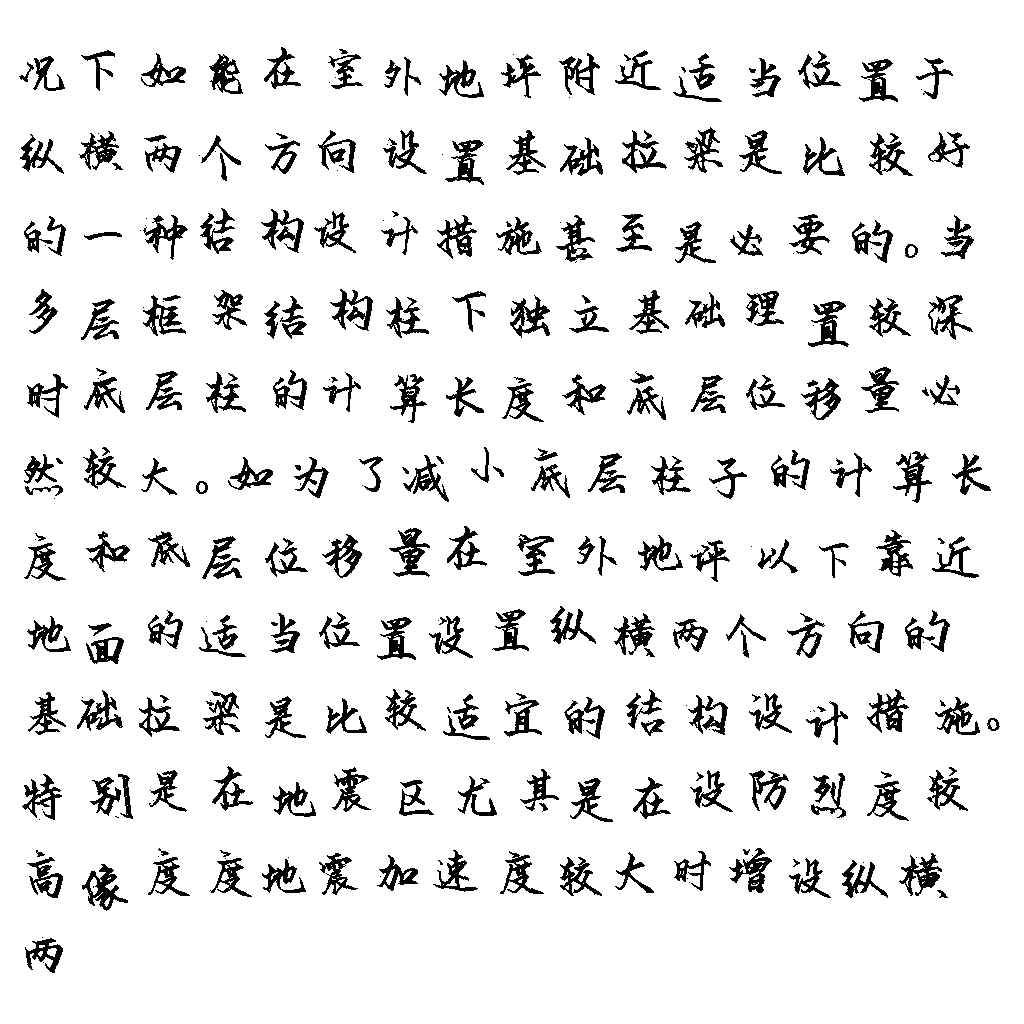 况下如能在室外地坪附近适当位置于
纵横两个方向设置基础拉梁是比较好
的一种结构设计措施甚至是必要的。当
多层框架结构柱下独立基础理置较深
时底层柱的计算长度和底层位移量必
然较大。如为了减小底层柱子的计算长
度和底层位移量在室外地评以下靠近
地面的适当位置设置纵横两个方向的
基础拉梁是比较适宜的结构设计措施。
特别是在地震区尤其是在设防烈度较
高像度度地震加速度较大时增设纵横
两